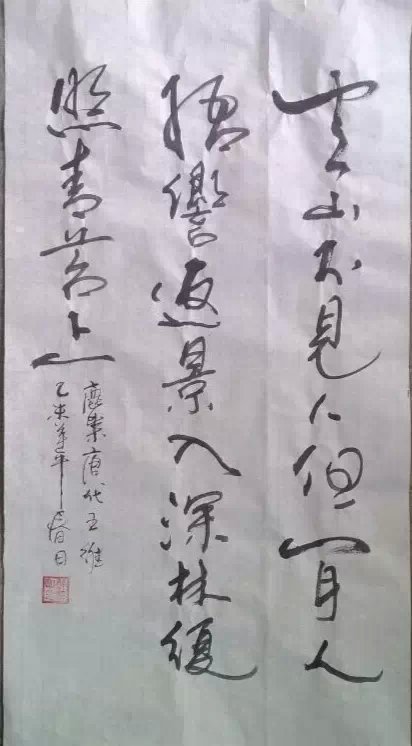 空山不見人但聞人
語響返景入深林復
照青苔上
鹿柴唐代王維
乙未羊年春日